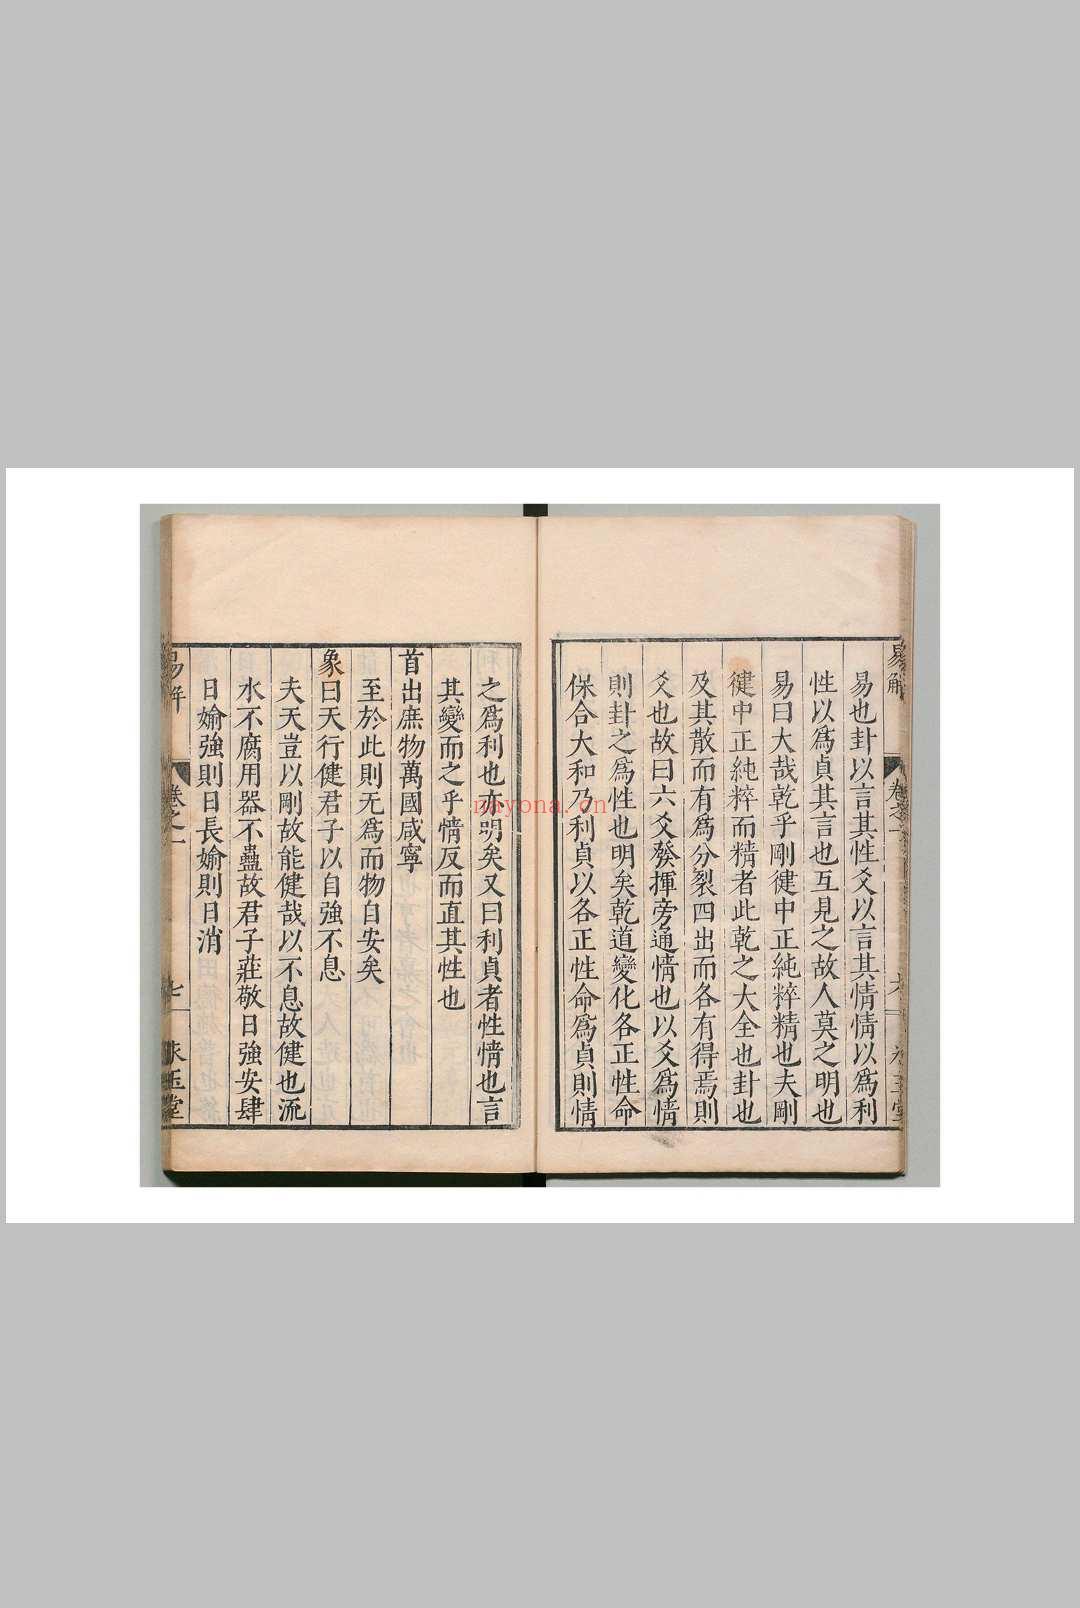 易解
卷之一
易也卦以言其性爻以言其情情以爲利
性以爲貞其言也互見之故人莫之明也
易曰大哉乾乎剛健中正純粹精也夫剛
健中正純粹而精者此乾之大全也卦也
及其散而有爲分裂四出而各有得焉則
爻也故曰六爻發揮旁通情也以爻爲情
則卦之爲性也明矣乾道變化各正性命
保合大和乃利貞以各正性命爲貞則情
之爲利也亦明矣又曰利貞者性情也言
其變而之乎情反而直其性也
首出庶物萬國咸寧
至於此則无爲而物自安矣
象曰天行健君子以自強不息
夫天豈以剛故能健哉以不息故健也流
水不腐用器不蠱故君子莊敬日強安肆
日媮強則日長媮則日消
易解
卷之一
七
玉堂
nayona.cn